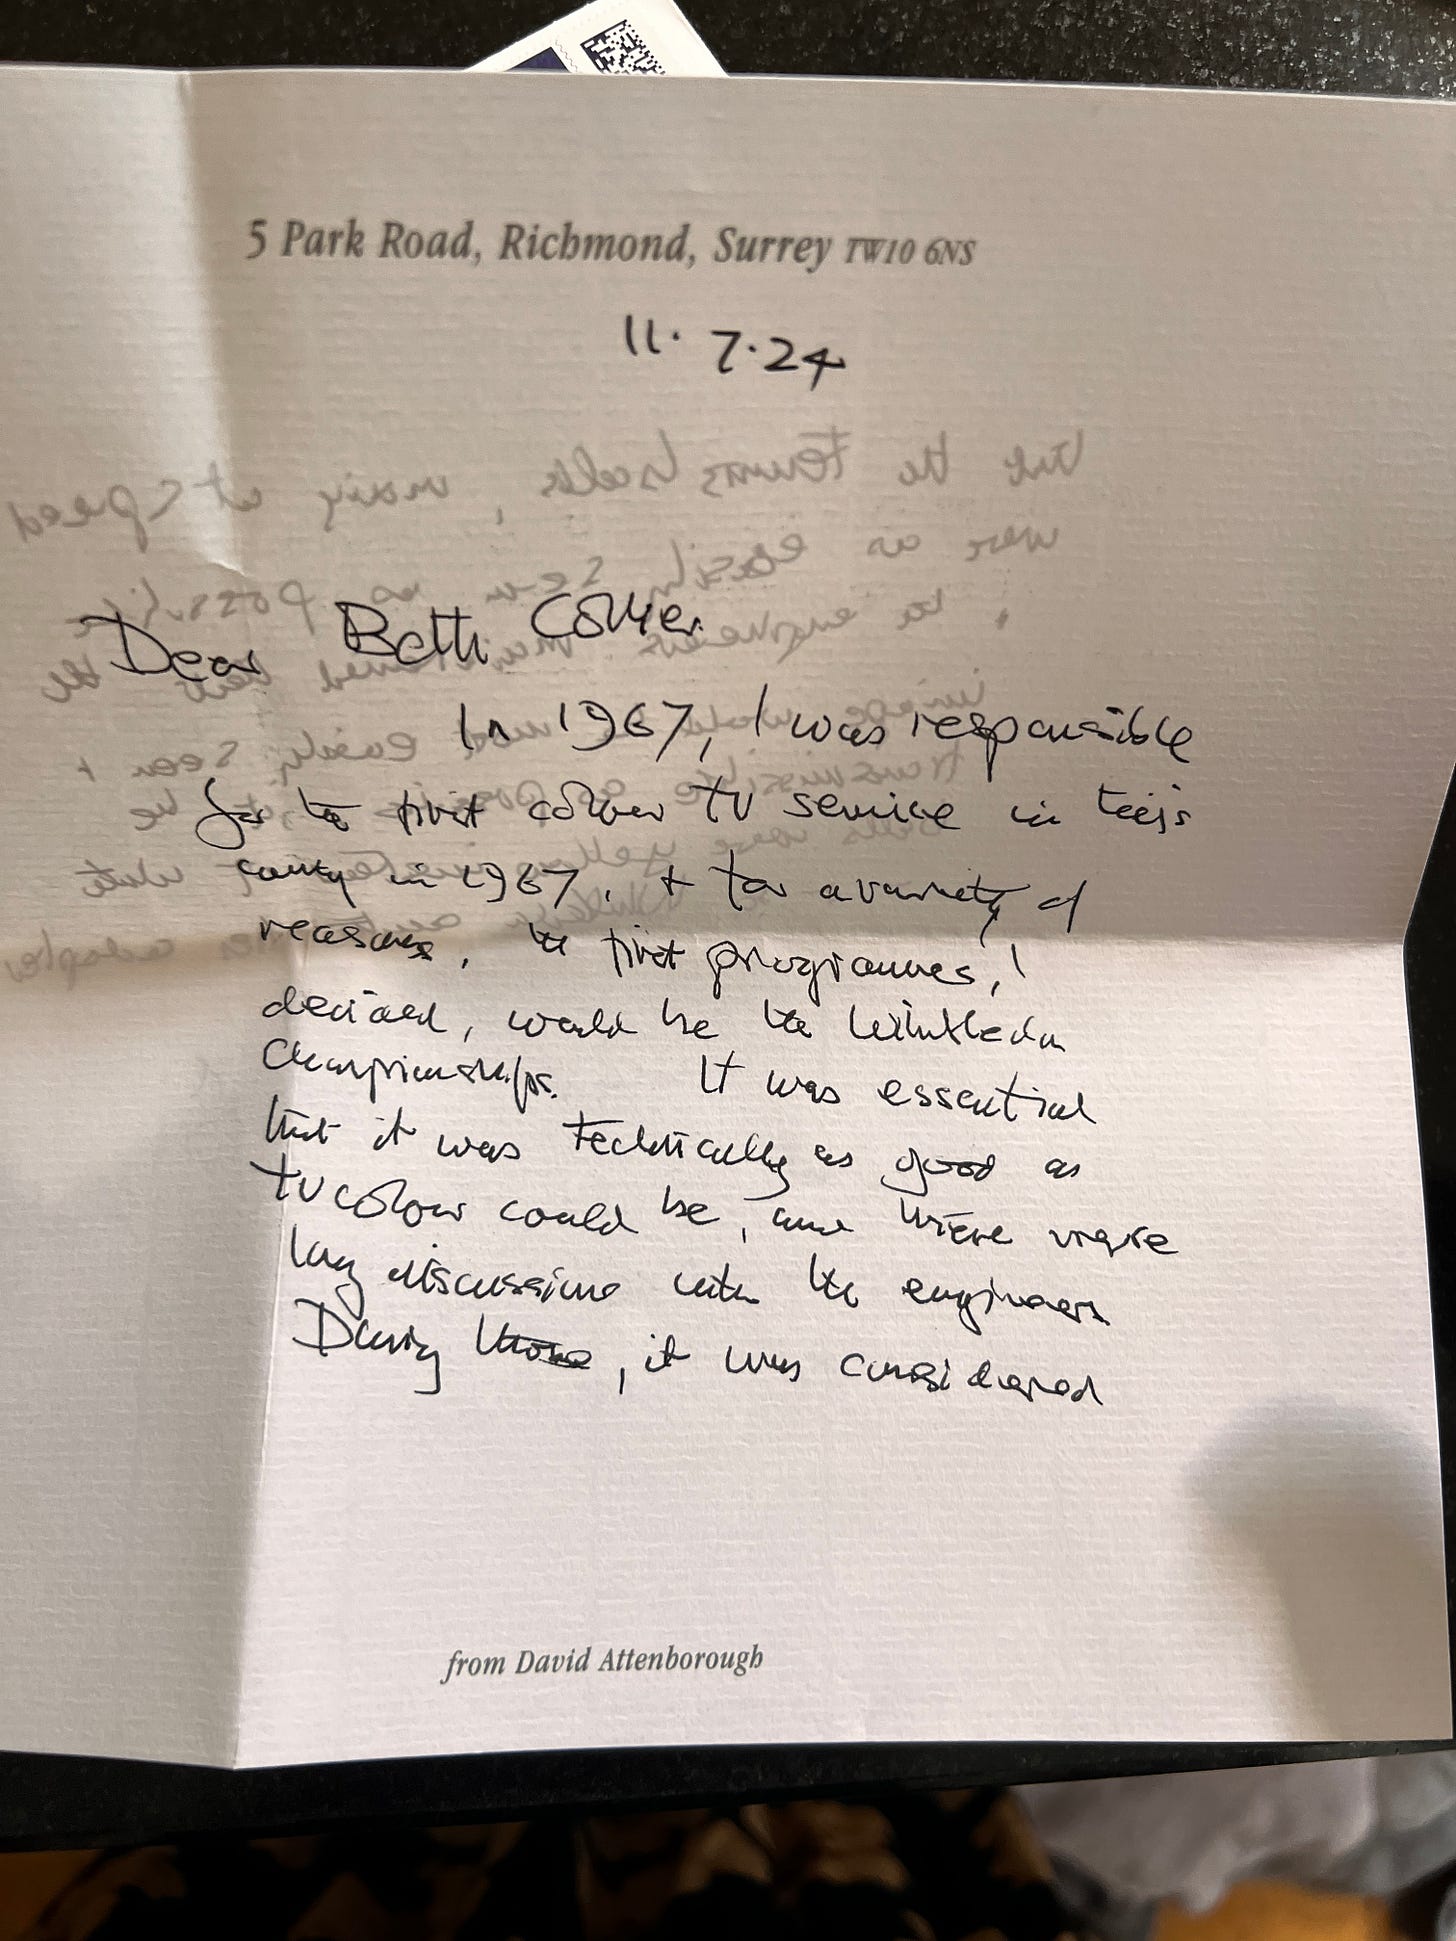 5 Park Road, Richmond, Surrey TW10 6NS
11. 7.24
Dear Beth Collier
In 1967, I was responsible
for the first colour TV service in this
country in 1967, + for a variety of
reasons, the first programmes, I
decided, would be the Wimbledon
Championships. It was essential
that it was technically as good as
TV colour could be, and there were
long discussions with the engineers
During those, it was considered
from David Attenborough